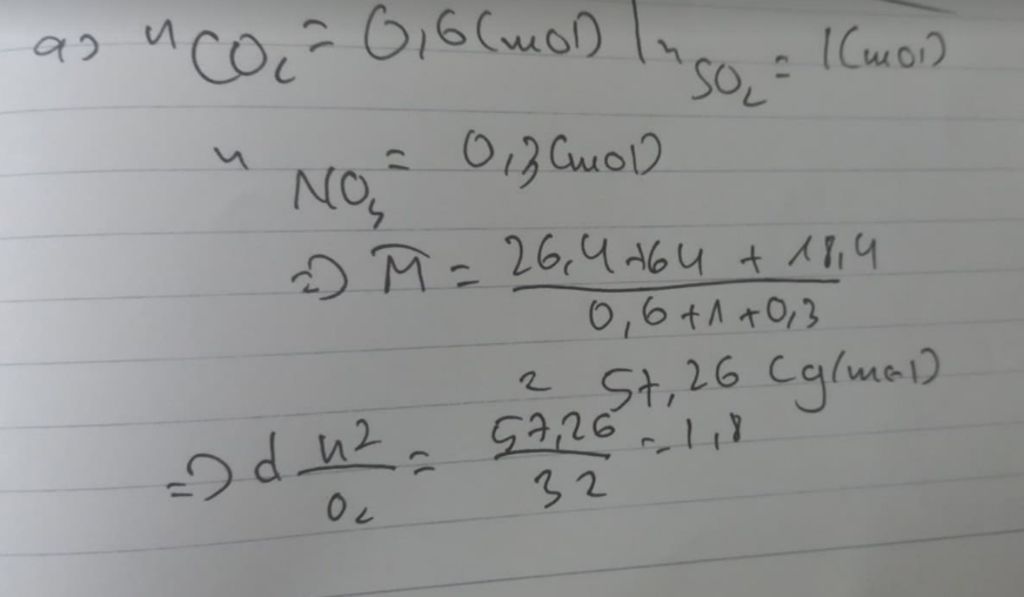 a) n CO2 = 0,6 (mol) | n SO2 = 1 (mol)
n NO3 = 0,3 (mol)
=> M̅ = 26,4 + 64 + 18,4 / 0,6 + 1 + 0,3
= 57,26 (g/mol)
=> d h2/O2 = 57,26/32 = 1,8